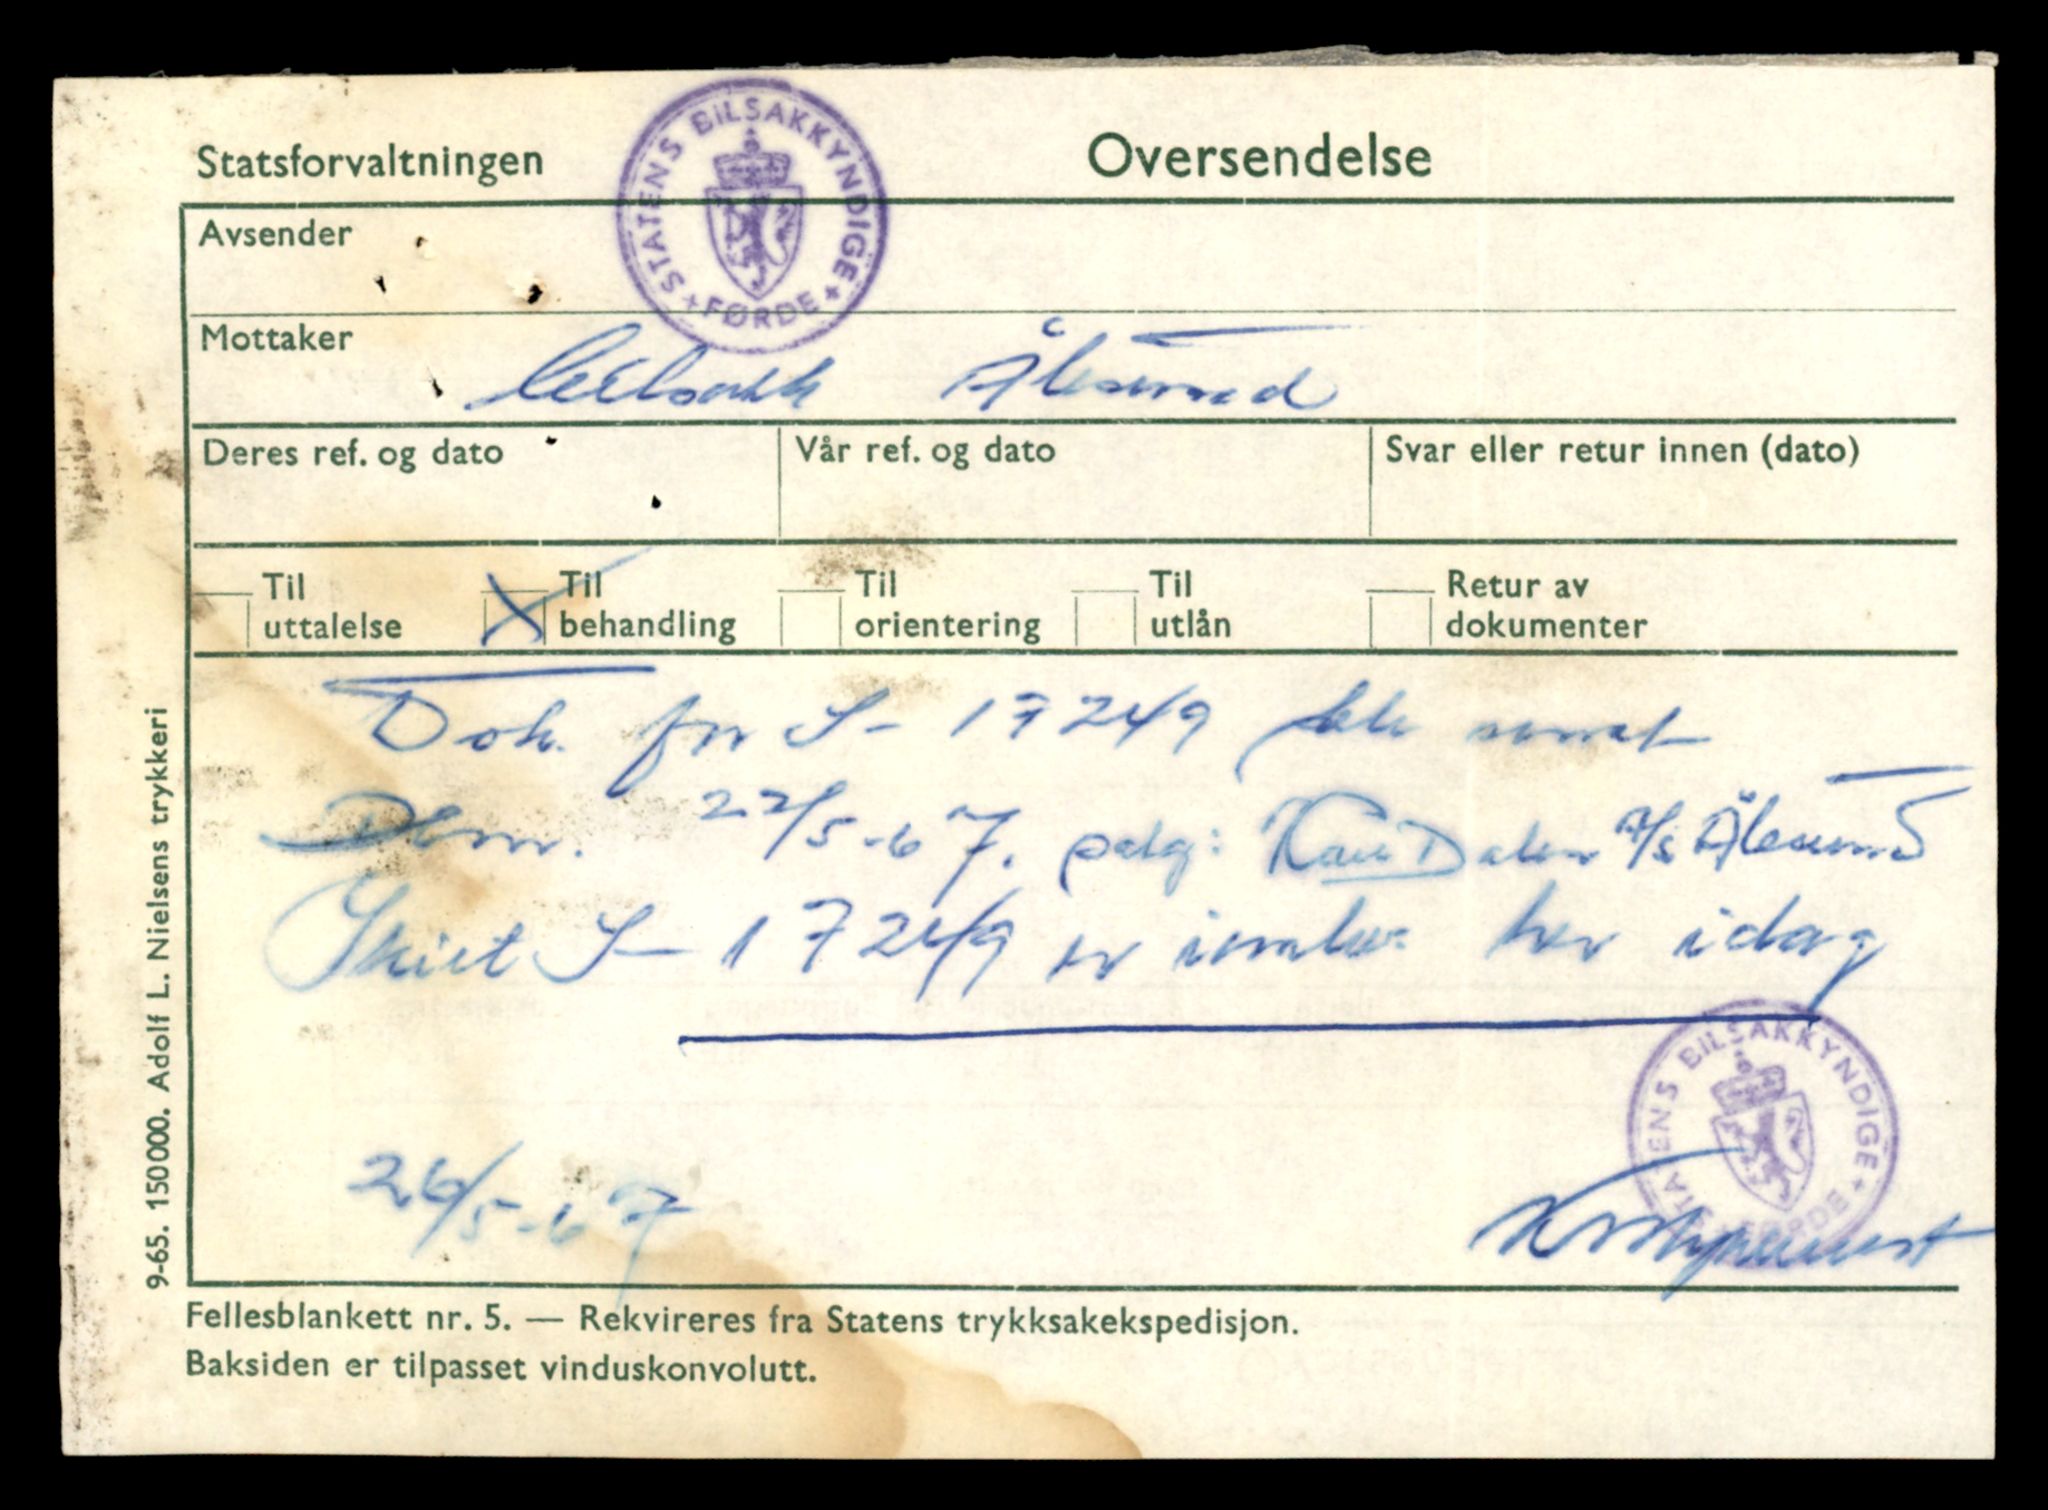 Statsforvaltningen
Oversendelse
STATENS BILSAKKYNDIGE
+ FØRDE +
Avsender
Mottaker
Ålesund
Deres ref. og dato
Vår ref. og dato
Svar eller retur innen (dato)
Til uttalelse
X Til behandling
Til orientering
Til utlån
Retur av dokumenter
Dok. for S- 17249 samt
22/5-67. Dalen A/S Ålesund
Skilt S- 17249 er her idag
26/5-67
STATENS BILSAKKYNDIGE
+ FØRDE +
9-65. 150000. Adolf L. Nielsens trykkeri
Fellesblankett nr. 5. — Rekvireres fra Statens trykksakekspedisjon.
Baksiden er tilpasset vinduskonvolutt.